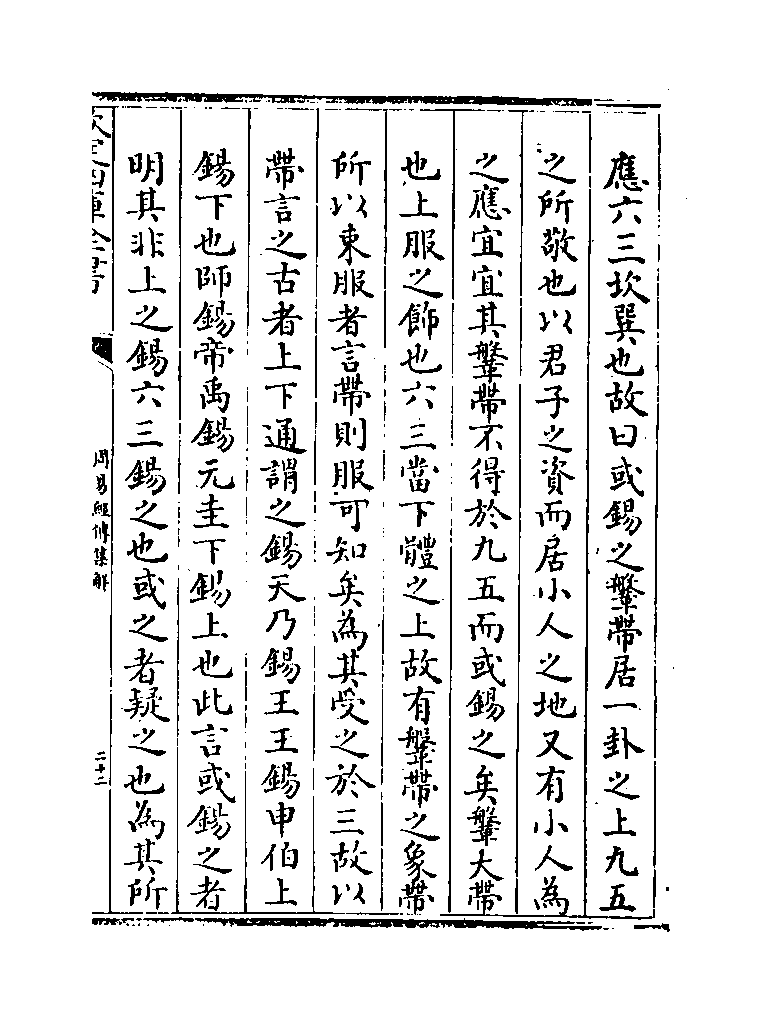 應六三坎巽也故曰或錫之鞶帶居一卦之上九五
之所敬也以君子之資而居小人之地又有小人為
之應宜宜其鞶帶不得於九五而或錫之矣鞶大帶
也上服之飾也六三當下體之上故有鞶帶之象帶
所以束服者言帶則服可知矣為其受之於三故以
帶言之古者上下通謂之錫天乃錫王王錫申伯上
錫下也師錫帝禹錫元圭下錫上也此言或錫之者
明其非上之錫六三錫之也或之者疑之也為其所
欽定四庫全書
周易經傳集解
二十二